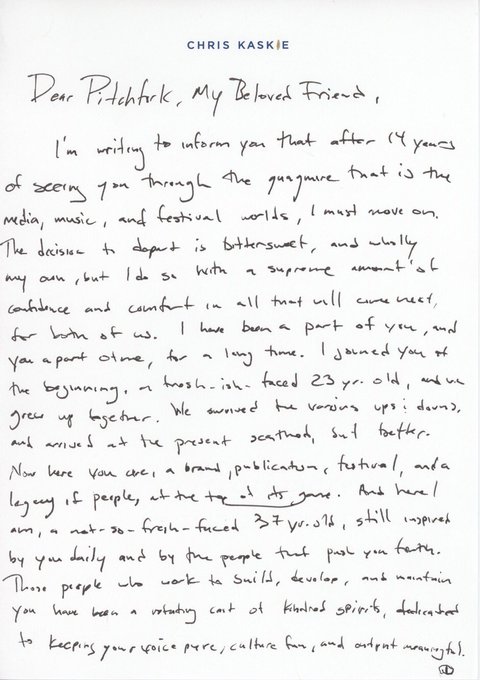 CHRIS KASKIE
Dear Pitchfork, My Beloved Friend,
I'm writing to inform you that after 14 years
of seeing you through the quagmire that is the
media, music, and festival worlds, I must move on.
The decision to depart is bittersweet, and wholly
my own, but I do so with a supreme amount of
confidence and comfort in all that will come next,
for both of us. I have been a part of you, and
you a part of me, for a long time. I joined you at
the beginning, a fresh-ish-faced 23 yr. old, and we
grew up together. We survived the various ups & downs,
and arrived at the present scathed, but better.
Now here you are, a brand, publication, festival, and a
legacy of people, at the top of its game. And here I
am, a not-so-fresh-faced 37 yr. old, still inspired
by you daily and by the people that push you forth.
Those people who work to build, develop, and maintain
you have been a rotating cast of kindred spirits, dedicated
to keeping your voice pure, culture fun, and output meaningful.
1